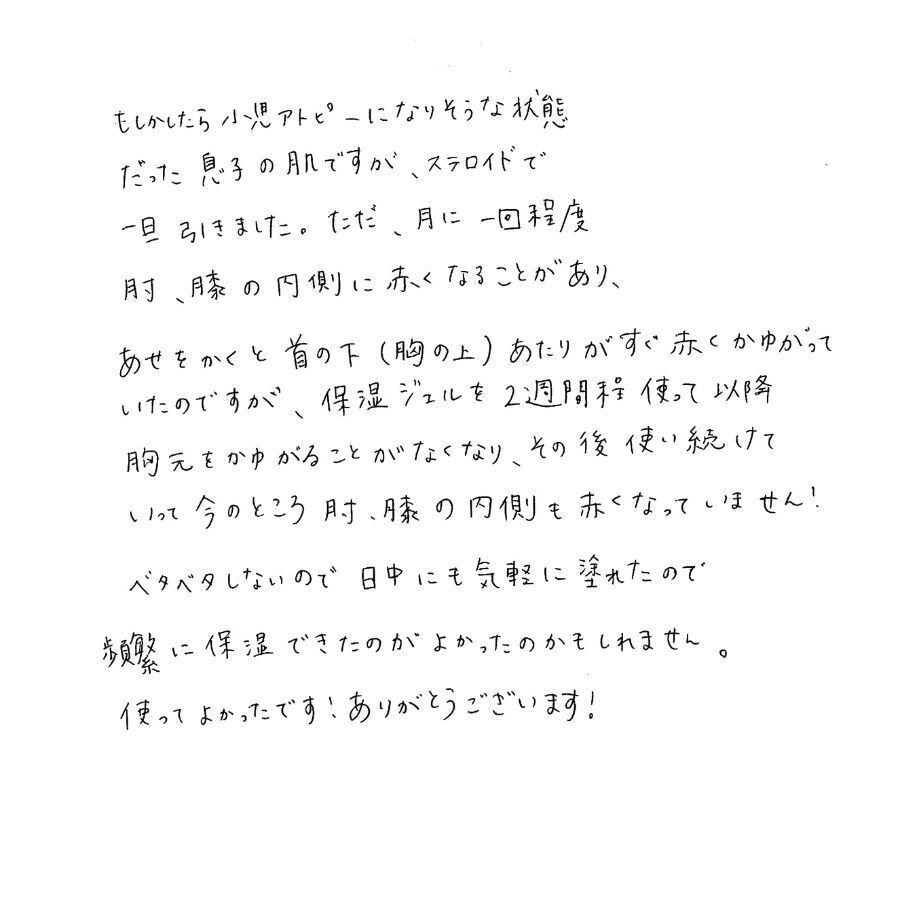 もしかしたら小児アトピーになりそうな状態
だった息子の肌ですが、ステロイドで
一旦引きました。ただ、月に一回程度
肘、膝の内側に赤くなることがあり、
あせをかくと首の下(胸の上)あたりがすぐ赤くかゆがって
いたのですが、保湿ジェルを2週間程使って以降
胸元をかゆがることがなくなり、その後使い続けて
いって今のところ肘、膝の内側も赤くなっていません!
ベタベタしないので日中にも気軽に塗れたので
頻繁に保湿できたのがよかったのかもしれません。
使ってよかったです!ありがとうございます!